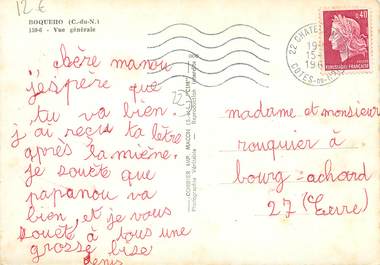 12€
BOQUEHO (C.-du-N.)
159-6 - Vue générale
chère manou
j'espère que
tu va bien.
j'ai reçu ta letre
après la miène.
je souète que
papanou va
bien, et je vous
souète à tous une
grosse bise
denis
22
COMBIER IMP. MACON
Photographie Véritable - Reproduction interdite
22 CHATE
15-
19
196
COTES-DU-NORD
0,40
REPUBLIQUE FRANÇAISE
madame et monsieur
rouquier à
bourg-achard
27 (Eure)